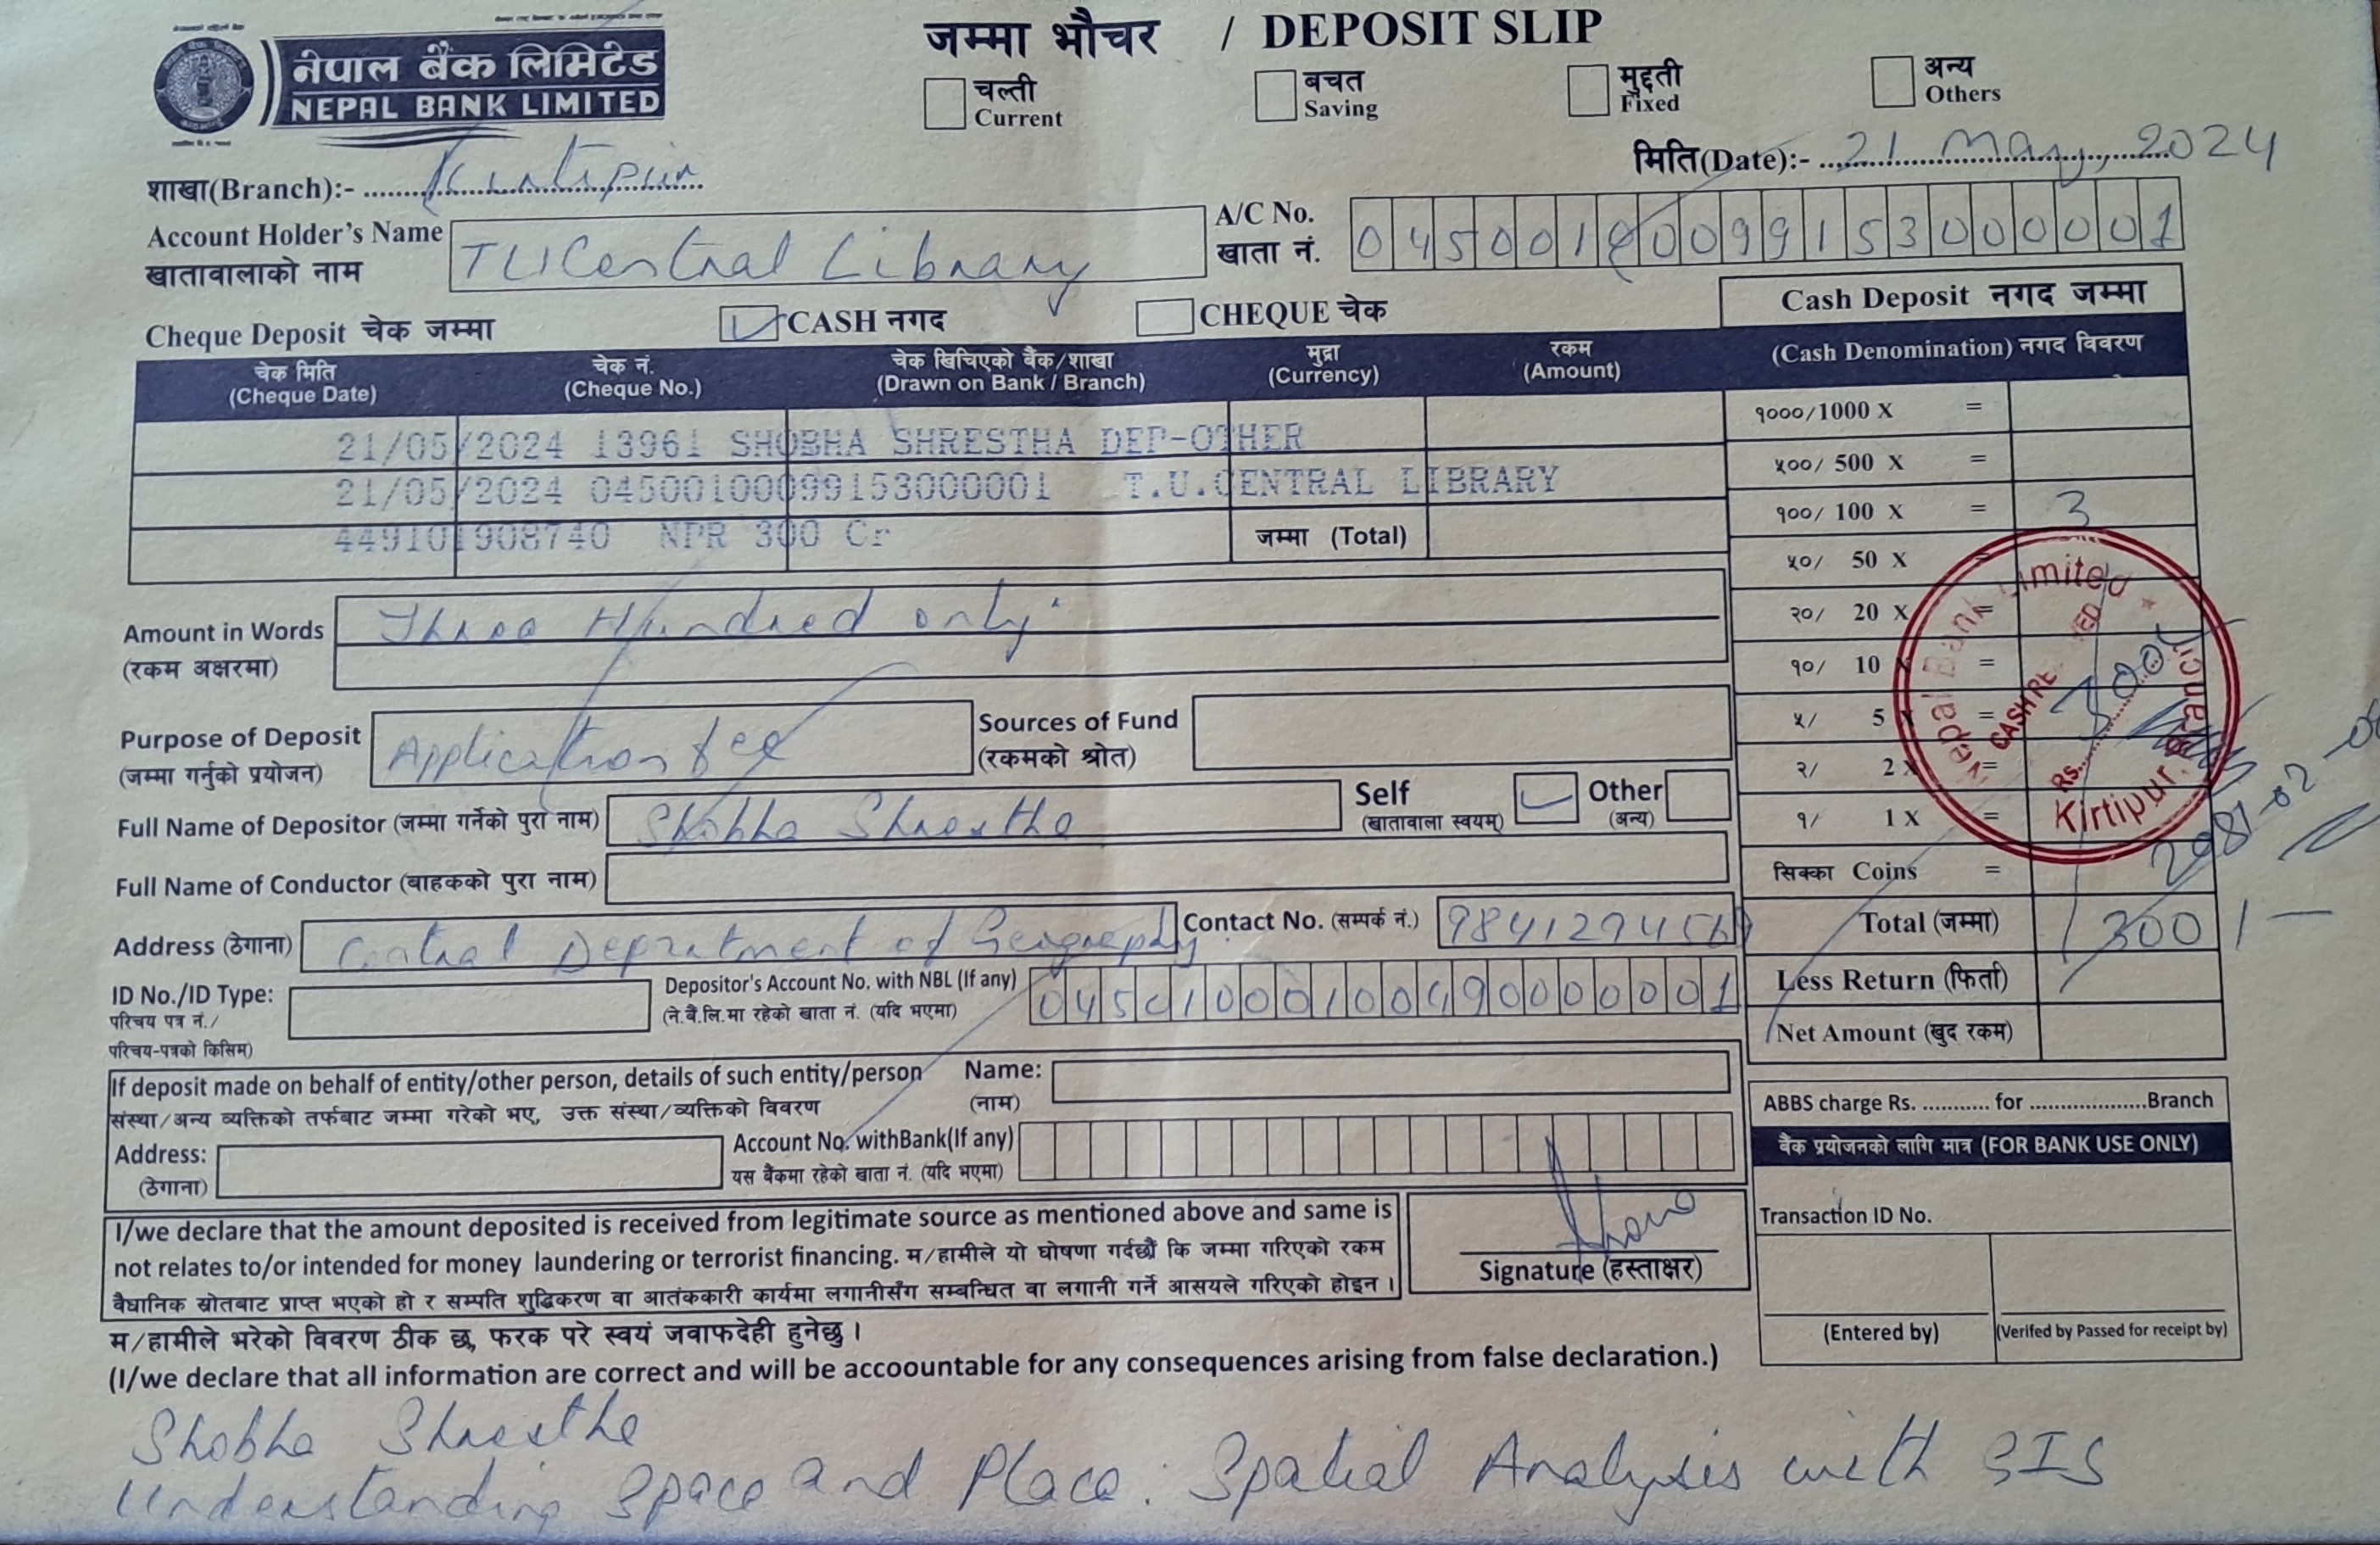 नेपाल बैंक लिमिटेड
NEPAL BANK LIMITED
जम्मा भौचर / DEPOSIT SLIP
चल्ती
Current
बचत
Saving
मुद्दती
Fixed
अन्य
Others
मिति(Date):- 21 May, 2024
शाखा(Branch):- Kirtipur
Account Holder's Name
खातावालाको नाम
TU Central Library
A/C No.
खाता नं.
04500100099153000001
Cheque Deposit चेक जम्मा
CASH नगद
CHEQUE चेक
Cash Deposit नगद जम्मा
चेक मिति
(Cheque Date)
चेक नं.
(Cheque No.)
चेक खिचिएको बैंक/शाखा
(Drawn on Bank / Branch)
मुद्रा
(Currency)
रकम
(Amount)
(Cash Denomination) नगद विवरण
21/05/2024 13961 SHOBHA SHRESTHA DEP-OTHER
21/05/2024 04500100099153000001 T.U.CENTRAL LIBRARY
449101908740 NPR 300 Cr
जम्मा (Total)
१०००/1000 X =
५००/ 500 X =
१००/ 100 X = 3
५०/ 50 X =
२०/ 20 X =
१०/ 10 X =
५/ 5 X =
२/ 2 X =
१/ 1 X =
सिक्का Coins =
Total (जम्मा) 300/-
Less Return (फिर्ता)
Net Amount (खुद रकम)
Nepal Bank Limited
Rs. 300/-
Kirtipur Branch
Amount in Words
(रकम अक्षरमा)
Three Hundred only.
Purpose of Deposit
(जम्मा गर्नुको प्रयोजन)
Application fee
Sources of Fund
(रकमको श्रोत)
Full Name of Depositor (जम्मा गर्नेको पुरा नाम)
Shobha Shrestha
Self
(खातावाला स्वयम्)
Other
(अन्य)
Full Name of Conductor (बाहकको पुरा नाम)
Address (ठेगाना)
Central Department of Geography
Contact No. (सम्पर्क नं.)
ID No./ID Type:
परिचय पत्र नं./
परिचय-पत्रको किसिम)
Depositor's Account No. with NBL (If any)
(ने.बैं.लि.मा रहेको खाता नं. (यदि भएमा)
If deposit made on behalf of entity/other person, details of such entity/person
संस्था/अन्य व्यक्तिको तर्फबाट जम्मा गरेको भए, उक्त संस्था/व्यक्तिको विवरण
Name:
(नाम)
Address:
(ठेगाना)
Account No. withBank(If any)
यस बैंकमा रहेको खाता नं. (यदि भएमा)
ABBS charge Rs. ........... for ....................Branch
बैंक प्रयोजनको लागि मात्र (FOR BANK USE ONLY)
Transaction ID No.
(Entered by)
(Verifed by Passed for receipt by)
I/we declare that the amount deposited is received from legitimate source as mentioned above and same is
not relates to/or intended for money laundering or terrorist financing. म/हामीले यो घोषणा गर्दछौं कि जम्मा गरिएको रकम
वैधानिक स्रोतबाट प्राप्त भएको हो र सम्पति शुद्धिकरण वा आतंककारी कार्यमा लगानीसँग सम्बन्धित वा लगानी गर्ने आसयले गरिएको होइन ।
Signature (हस्ताक्षर)
म/हामीले भरेको विवरण ठीक छ, फरक परे स्वयं जवाफदेही हुनेछु ।
(I/we declare that all information are correct and will be accoountable for any consequences arising from false declaration.)
Shobha Shrestha
Understanding Space and Place: Spatial Analysis with GIS